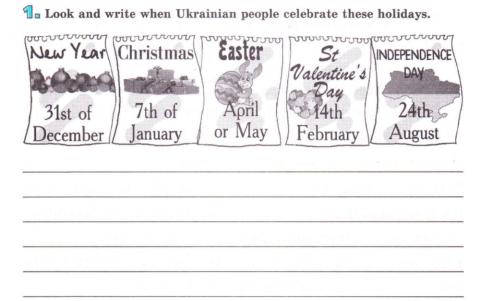 1. Look and write when Ukrainian people celebrate these holidays.
New Year
31st of
December
Christmas
7th of
January
Easter
April
or May
St
Valentine's
Day
14th
February
INDEPENDENCE
DAY
24th
August